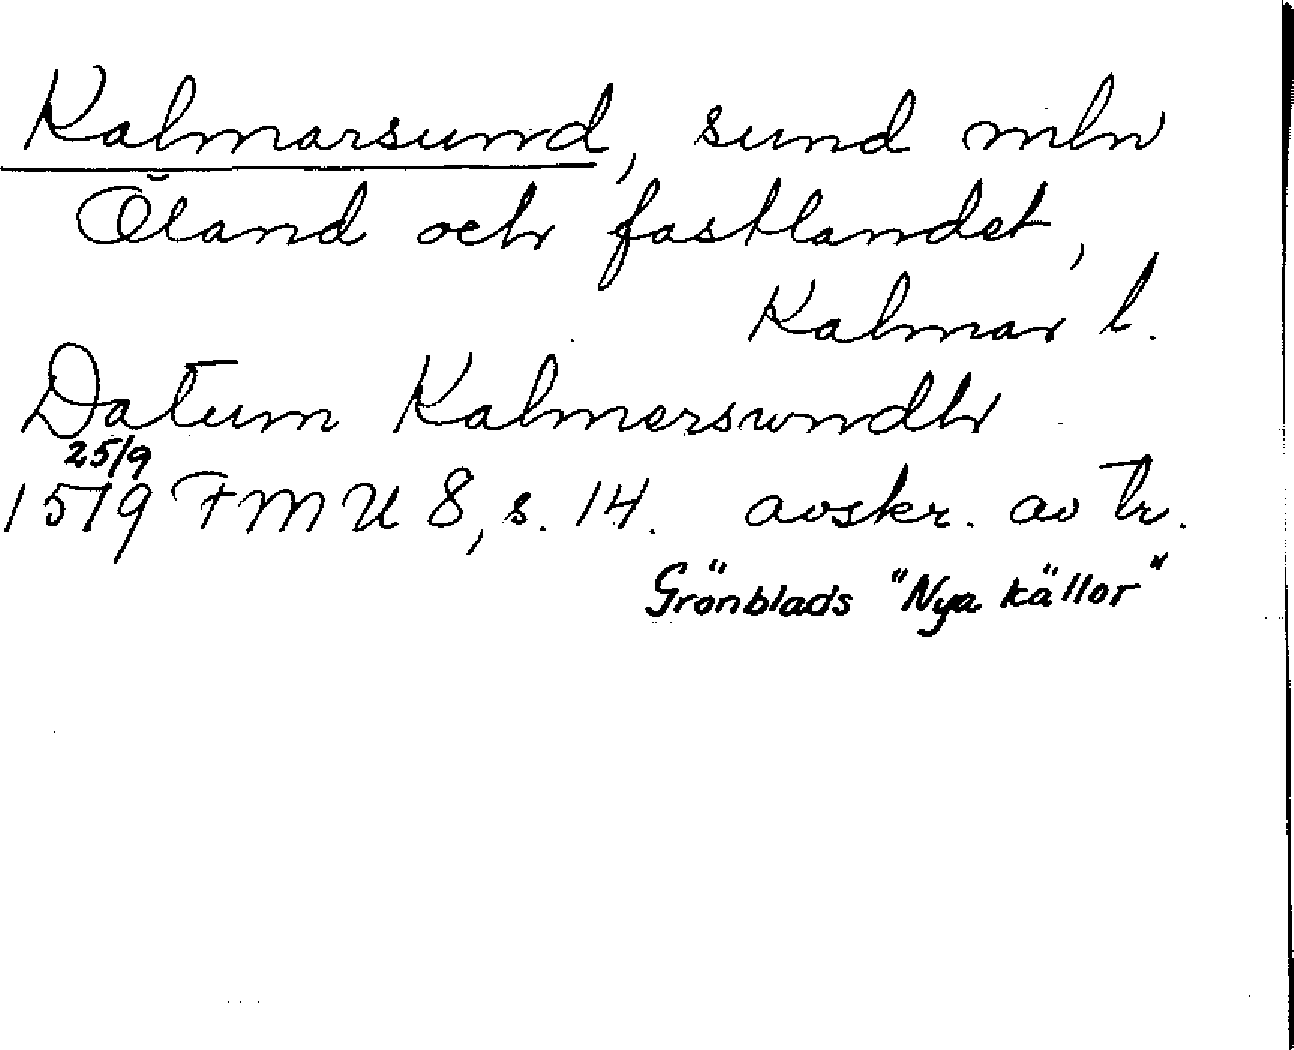 Kalmarsund, sund mln
Öland och fastlandet,
Kalmar l.
Datum Kalmerswndh
25/9
1519 FMU 8, s. 14. avskr. av tr.
Grönblads "Nya källor"